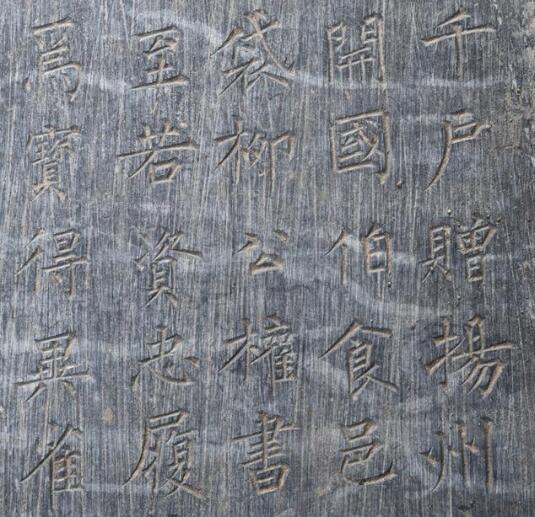 千户贈揚州
開國伯食邑
袋柳公權書
至若資忠履
爲寶得異雀